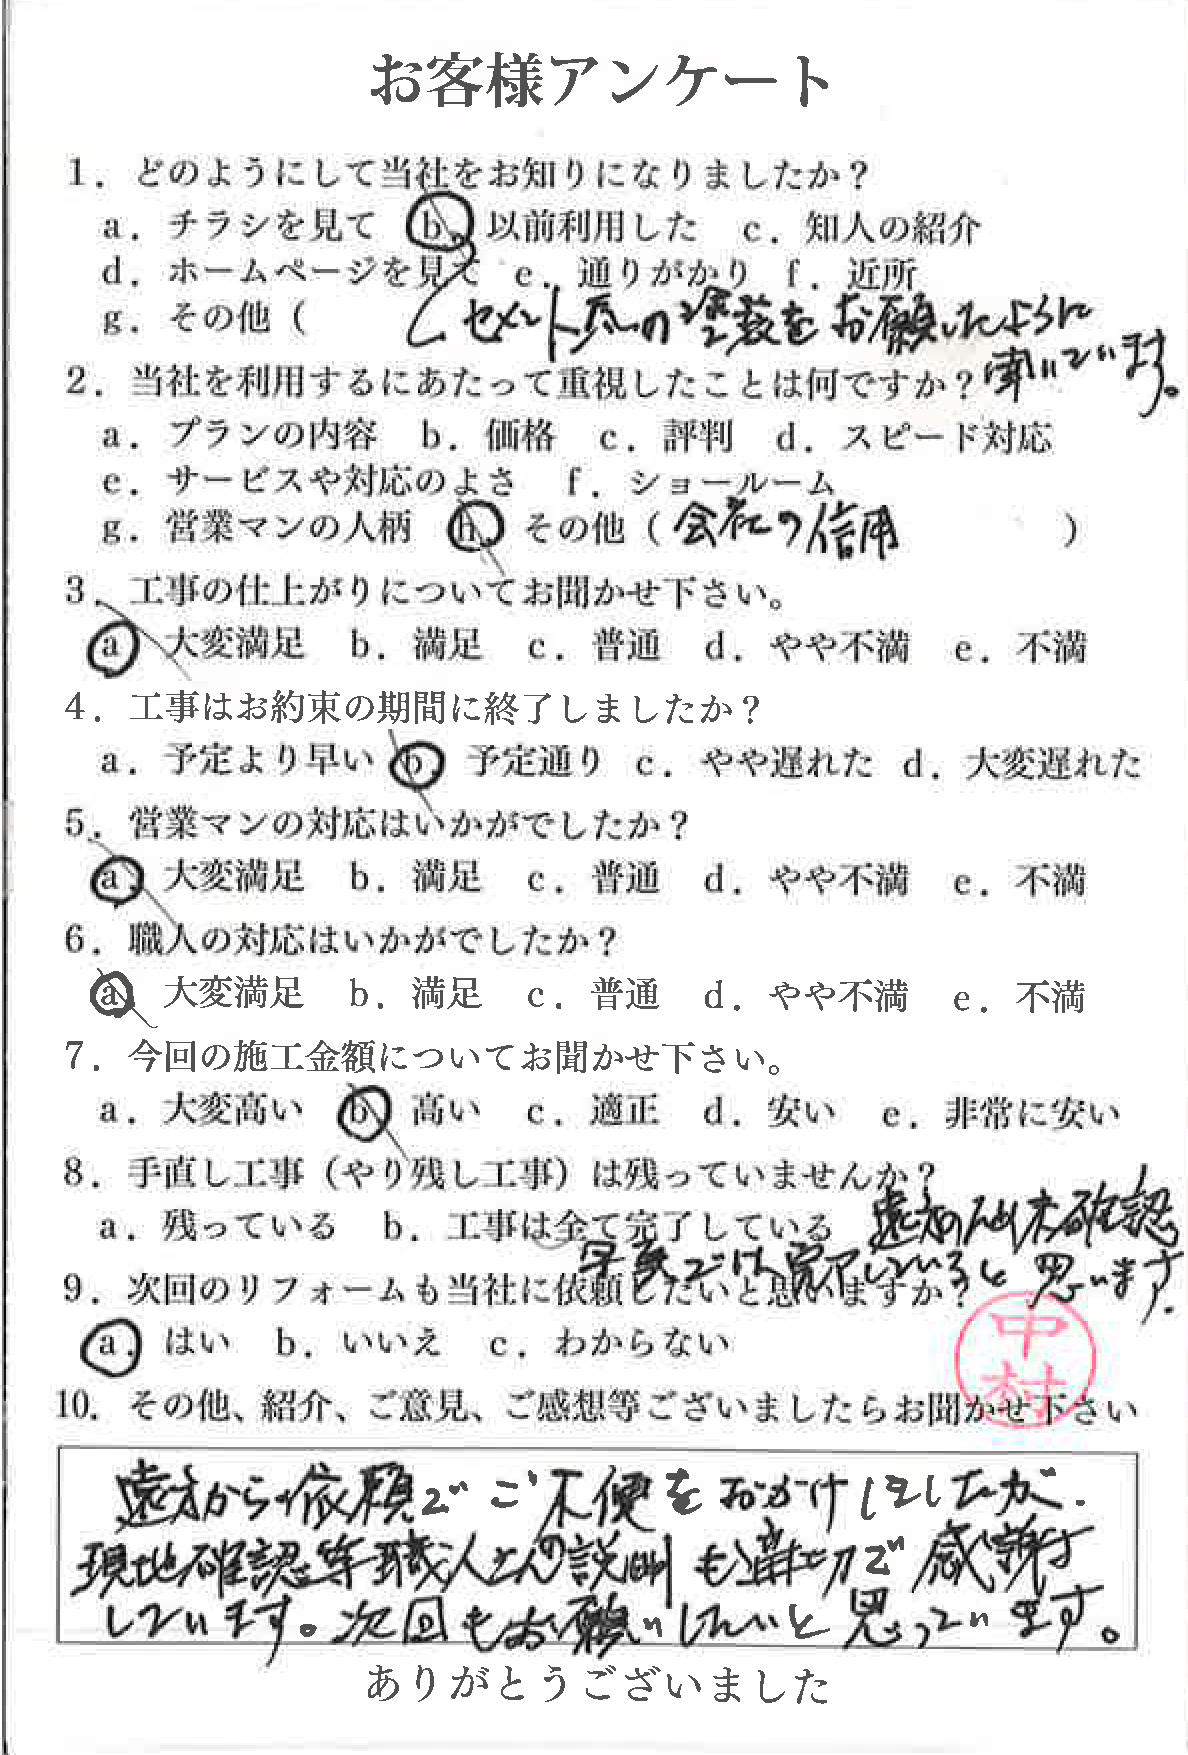 お客様アンケート
1. どのようにして当社をお知りになりましたか？
a. チラシを見て b. 以前利用した c. 知人の紹介
d. ホームページを見て e. 通りがかり f. 近所
g. その他（ セメント瓦の塗装をお願いしたように
聞いています。
2. 当社を利用するにあたって重視したことは何ですか？
a. プランの内容 b. 価格 c. 評判 d. スピード対応
e. サービスや対応のよさ f. ショールーム
g. 営業マンの人柄 h. その他（会社の信用 ）
3. 工事の仕上がりについてお聞かせ下さい。
a 大変満足 b. 満足 c. 普通 d. やや不満 e. 不満
4. 工事はお約束の期間に終了しましたか？
a. 予定より早い b 予定通り c. やや遅れた d. 大変遅れた
5. 営業マンの対応はいかがでしたか？
a. 大変満足 b. 満足 c. 普通 d. やや不満 e. 不満
6. 職人の対応はいかがでしたか？
a 大変満足 b. 満足 c. 普通 d. やや不満 e. 不満
7. 今回の施工金額についてお聞かせ下さい。
a. 大変高い b 高い c. 適正 d. 安い e. 非常に安い
8. 手直し工事（やり残し工事）は残っていませんか？
a. 残っている b. 工事は全て完了している 遠方のため未確認
写真では完了していると思います。
9. 次回のリフォームも当社に依頼したいと思いますか？
a. はい b. いいえ c. わからない
中村
10. その他、紹介、ご意見、ご感想等ございましたらお聞かせ下さい
遠方から依頼でご不便をおかけしましたが、
現地確認等職人さんの説明も適切で感謝
しています。次回もお願いしたいと思っています。
ありがとうございました